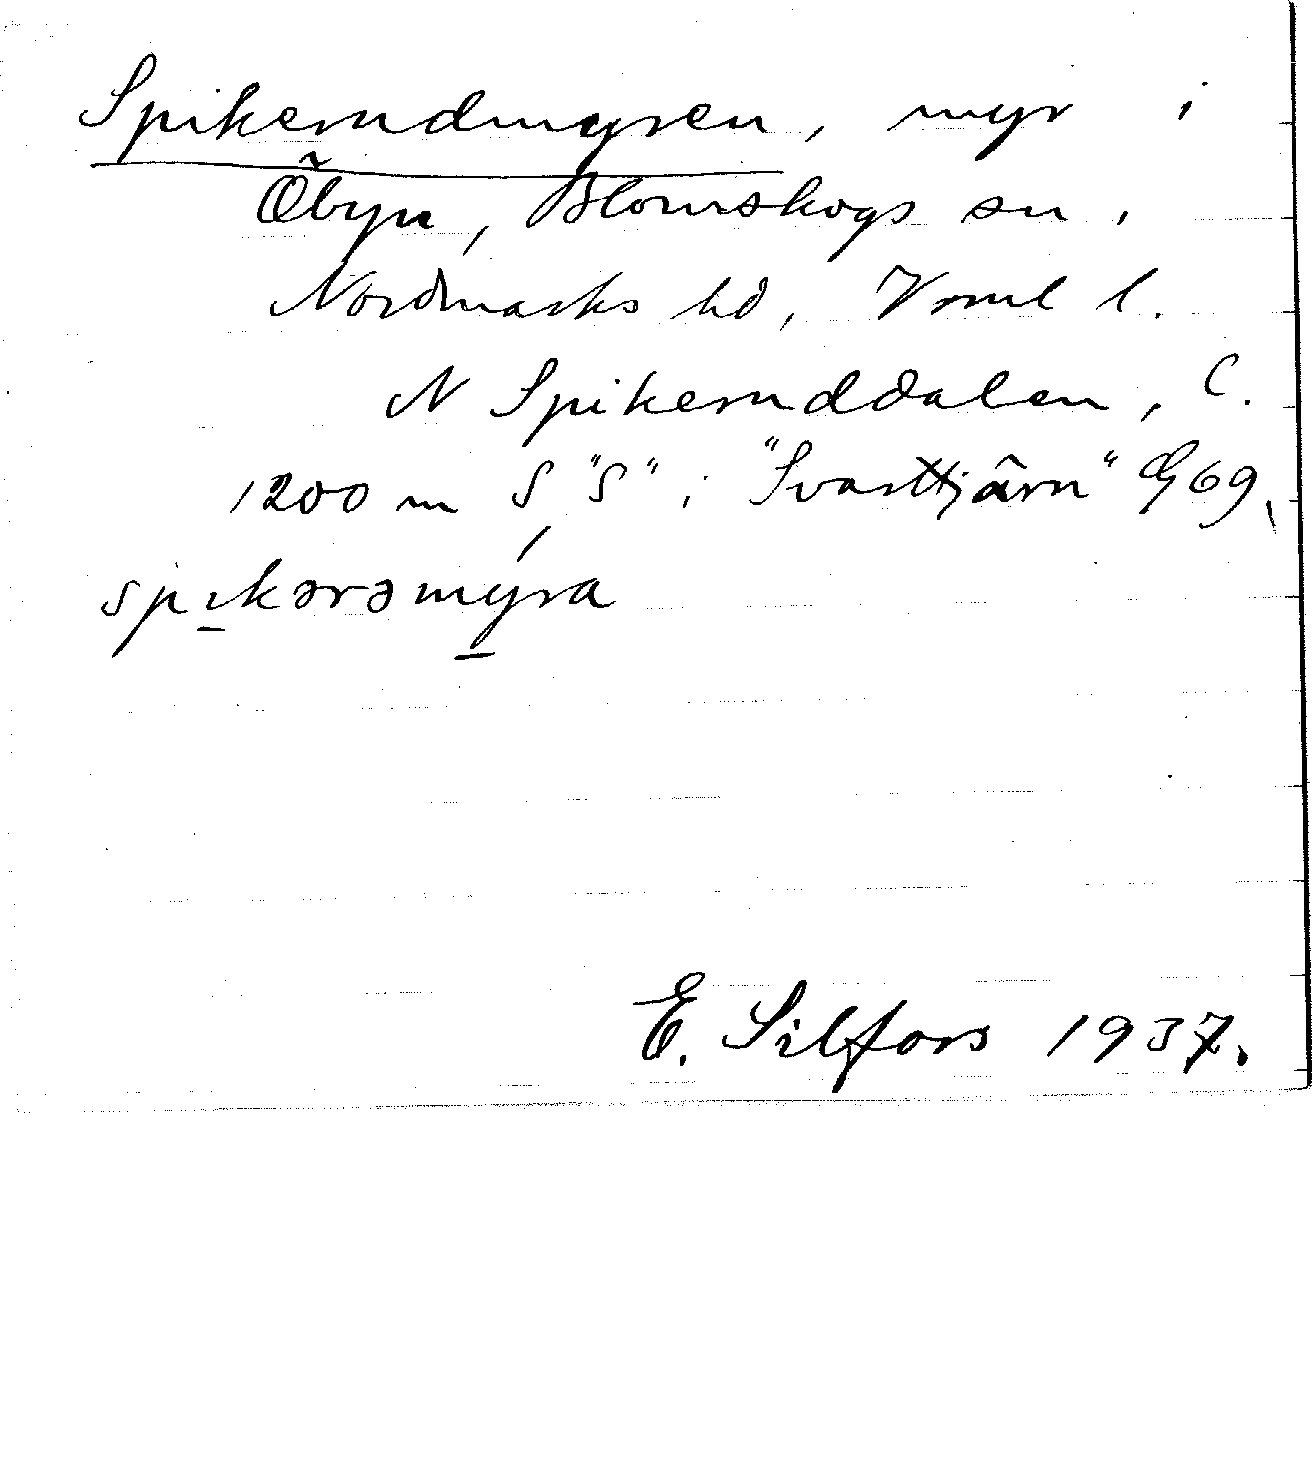 Spikerudmyren, myr i
Öbyn, Blomskogs sn,
Nordmarks hd, Vrml l.
N Spikeruddalen, c.
1200 m S "S" i "Svarttjärn" G 69,
spıkərəmýra
E. Silfors 1937.